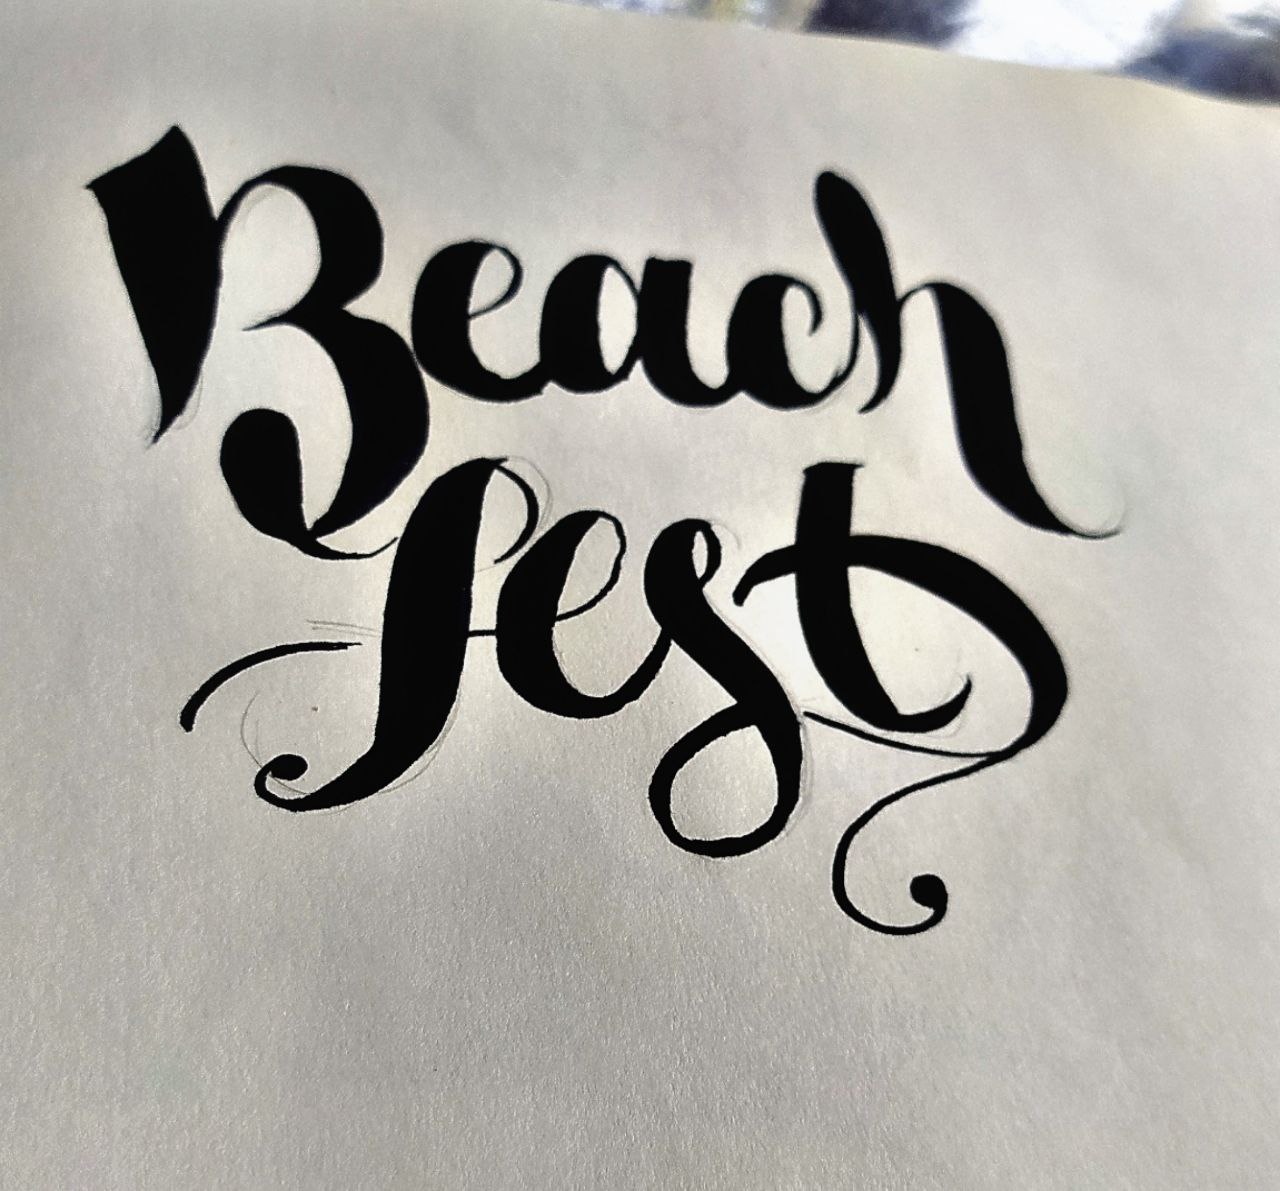 Beach
fest